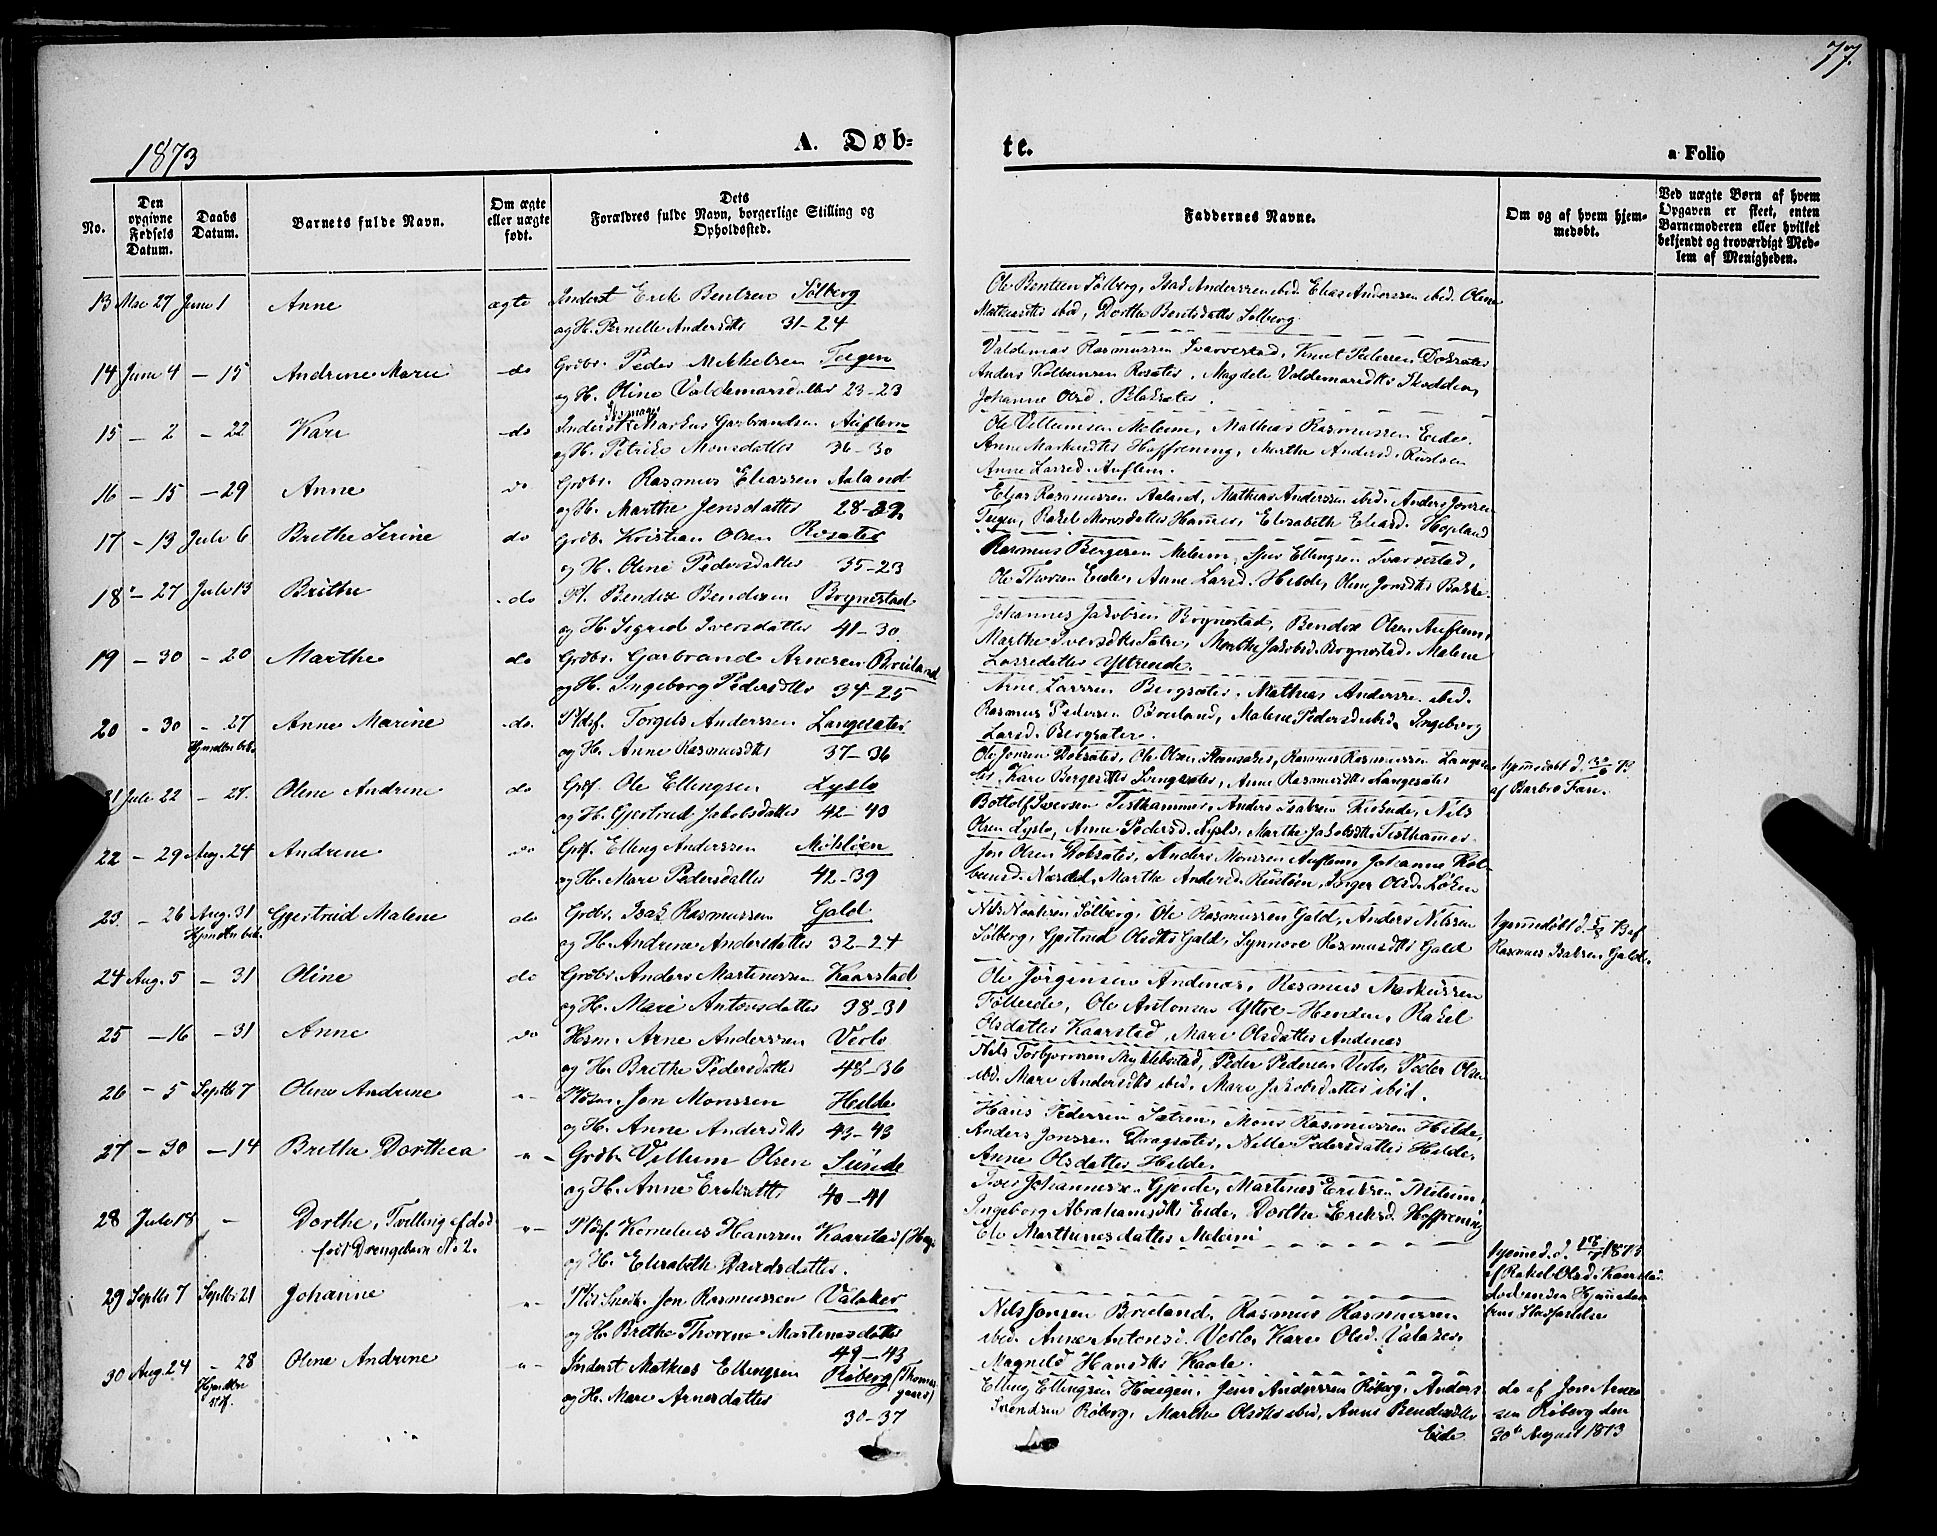 77.
1873
A. Døb-
te.
a Folio
No.
Den opgivne Fødsels Datum.
Daabs Datum.
Barnets fulde Navn.
Om ægte eller uægte født.
Dets Forældres fulde Navn, borgerlige Stilling og Opholdssted.
Faddernes Navne.
Om og af hvem hjemmedøbt.
Ved uægte Børn af hvem Opgaven er skeet, enten Barnemoderen eller hvilket bekjendt og troværdigt Medlem af Menigheden.
13 Mai 27 Juni 1 Anne ægte Inderst Erik Bentsen Solberg
og H. Pernille Andersdtr 31-24
Ole Bentsen Solberg, Isak Anderssen ibid. Elias Anderssen ibid. Oline
Mathiasdtr ibid, Dorthe Bentsdatter Solberg.
14 Juni 4 - 15 Andrine Marie do Grdbr. Peder Mikkelsen Teigen
og H. Oline Valdemarsdatter 23-23
Valdemar Rasmussen Svarvestad, Knut Pedersen Dokset
Anders Kolbeinsen Roset, Magdele Valdemarsdtr Skodden,
Johanne Olsd.
15 - 2 - 22 Kari do Inderst Markus Garbrandsen Auflem
og H. Petrike Monsdatter 36-30
Ole Villumsen Meleim, Mathias Rasmussen Eide.
Anne Markusdtr Hoffrening, Marthe Andersd. Rustøen
Anne Larsd. Auflem.
16 - 15 - 29 Anne do Grdbr. Rasmus Eliassen Aaland
og H. Marthe Jensdatter 28-29.
Elias Rasmussen Aaland, Mathias Anderssen ibid. Anders Jonsen
Teigen, Rakel Monsdatter Hammer, Elisabeth Eliasd. Hopland
17 - 13 Juli 6 Brithe Serine do Grdbr. Kristian Olsen Rosæter
og H. Oline Pedersdatter 35-23
Rasmus Bergesen Meleim, Sjur Ellingsen Svarvestad,
Ole Thorsen Eide, Anne Larsd. Hilde, Oline Jonsdtr Bakke.
18 - 27 Juli 13 Brithe do Bendix Bendixen Brynestad
og H. Sigrid Iversdatter 41-30.
Johannes Jakobsen Brynestad, Bendix Olsen Auflem,
Marthe Iversdtr Marthe Jakobsd. Brynestad, Malene
Larsdatter Yttreide.
19 - 30 - 20 Marthe do Grdbr. Garbrand Arnesen Breiland
og H. Ingeborg Pedersdtr 34-25
Arne Larssen Bergsæter, Mathias Anderssen ibid.
Rasmus Pedersen Breiland, Malene Pedersd. ibid. Ingeborg
Larsd. Bergsæter.
20 - 30 - 27 Anne Marine do Pldsf. Torgels Anderssen Langesæter
Hjmdbn bekr.
og H. Anne Rasmusdtr 37-36
Ole Jonsen Dokset, Ole Olsen Rasmus Rasmussen Langesæ-
ter, Kari Bergesdtr Anne Rasmusdtr Langesæter
hjemmedøbt d. 30/6 73
af Barbro Fan.
21 Juli 22 - 27. Oline Andrine do Grdf. Ole Ellingsen Lyslo
og H. Gjertrud Jakobsdatter 42-43
Bottolf Iversen Tisthammer, Anders Isaksen Nils
Olsen Lyslo, Anne Pedersd. Lyslo, Marthe Jakobsdtr Tisthammer.
22 - 29 Aug. 24 Andrine do Grdf. Elling Anderssen Mikløen
og H. Mari Pedersdatter 42-39
Jon Olsen Dokset, Anders Monssen Auflem, Johanne Kol-
beinsd. Nærdal, Marthe Andersd. Rustøen, Inger Olsd. Løken
23. - 26 Aug. 31 Gjertrud Malene do Grdbr. Isak Rasmussen Gald
Hjmdbn bekr.
og H. Andrine Andersdatter 32-24
Nils Nielssen Solberg, Ole Rasmussen Gald, Anders Nilssen
Solberg, Gjertrud Olsdtr Gald, Synnøve Rasmusdtr Gald
hjemmedøbt d. 5/8 73 af
Rasmus Isaksen Galde.
24 Aug. 5 - 31 Oline do Grdbr. Anders Martinussen Kaarstad
og H. Mari Antonsdatter 38-31
Ole Jørgensen Andenæs, Rasmus Markussen
Følleide, Ole Antonsen Ytre-Henden, Rakel
Olsdatter Kaarstad, Mari Olsdatter Andenæs
25 - 16 - 31 Anne do Hsm. Arne Anderssen Verlo
og H. Brithe Pedersdatter 48-36
Nils Torbjørnsen Myklebostad, Peder Pedersen Verlo, Peder Olsen
ibid. Mari Andersdtr ibid. Mari Jakobsdatter ibid.
26 - 5 Septbr 7 Oline Andrine " - Jon Monssen Hilde
og H. Anne Andersdtr 43-43
Hans Pedersen Sætren, Mons Rasmussen Hilde,
Anders Jonssen Dragsæter, Nille Pedersdatter Hilde,
Anne Olsdatter Hilde.
27 - 30 - 14 Brithe Dorthea " - Grdbr. Villum Olsen Sunde
og H. Anne Eriksdtr 40-41
Iver Johannesen Gjerde, Martinus Eriksen Meleim,
Ingeborg Abrahamsdtr Eide, Dorthe Eriksd. Hoffrening
Eli Marthinusdatter Meleim
28 Juli 18 - Dorthe, Tvilling af død
født Drengebarn No 2. " - Pldsf. Kornelius Hanssen Kaarstad
og H. Elisabeth Davidsdatter.
hjemmed. d. 18/7 1873
af Rakel Olsd. Kaarstad.
død inden Hjemmedaa-
bens Stadfæstelse
29 Septbr 7 Septbr 21 Johanne " - Jon Rasmussen Valaker
og H. Brithe Thorene Martinusdatter
49-43
Nils Jonsen Breiland, Rasmus Rasmussen
ibid. Anne Antonsd. Verlo, Kari Olsd. Valaker,
Magnild Hansdtr Kaale.
30 Aug. 24 - 28 Oline Andrine " - Inderst Mathias Ellingsen Roberg (Thomas-
gaard)
Hjmdbn
stdf.
og H. Mari Arnesdatter
30-37
Elling Ellingsen Haugen, Jens Anderssen Roberg, Anders
Svendsen Roberg, Marthe Olsdtr ibid, Anne Bendixdtr
Eide.
do af Jon Arnes-
sen Roberg den
30te August 1873